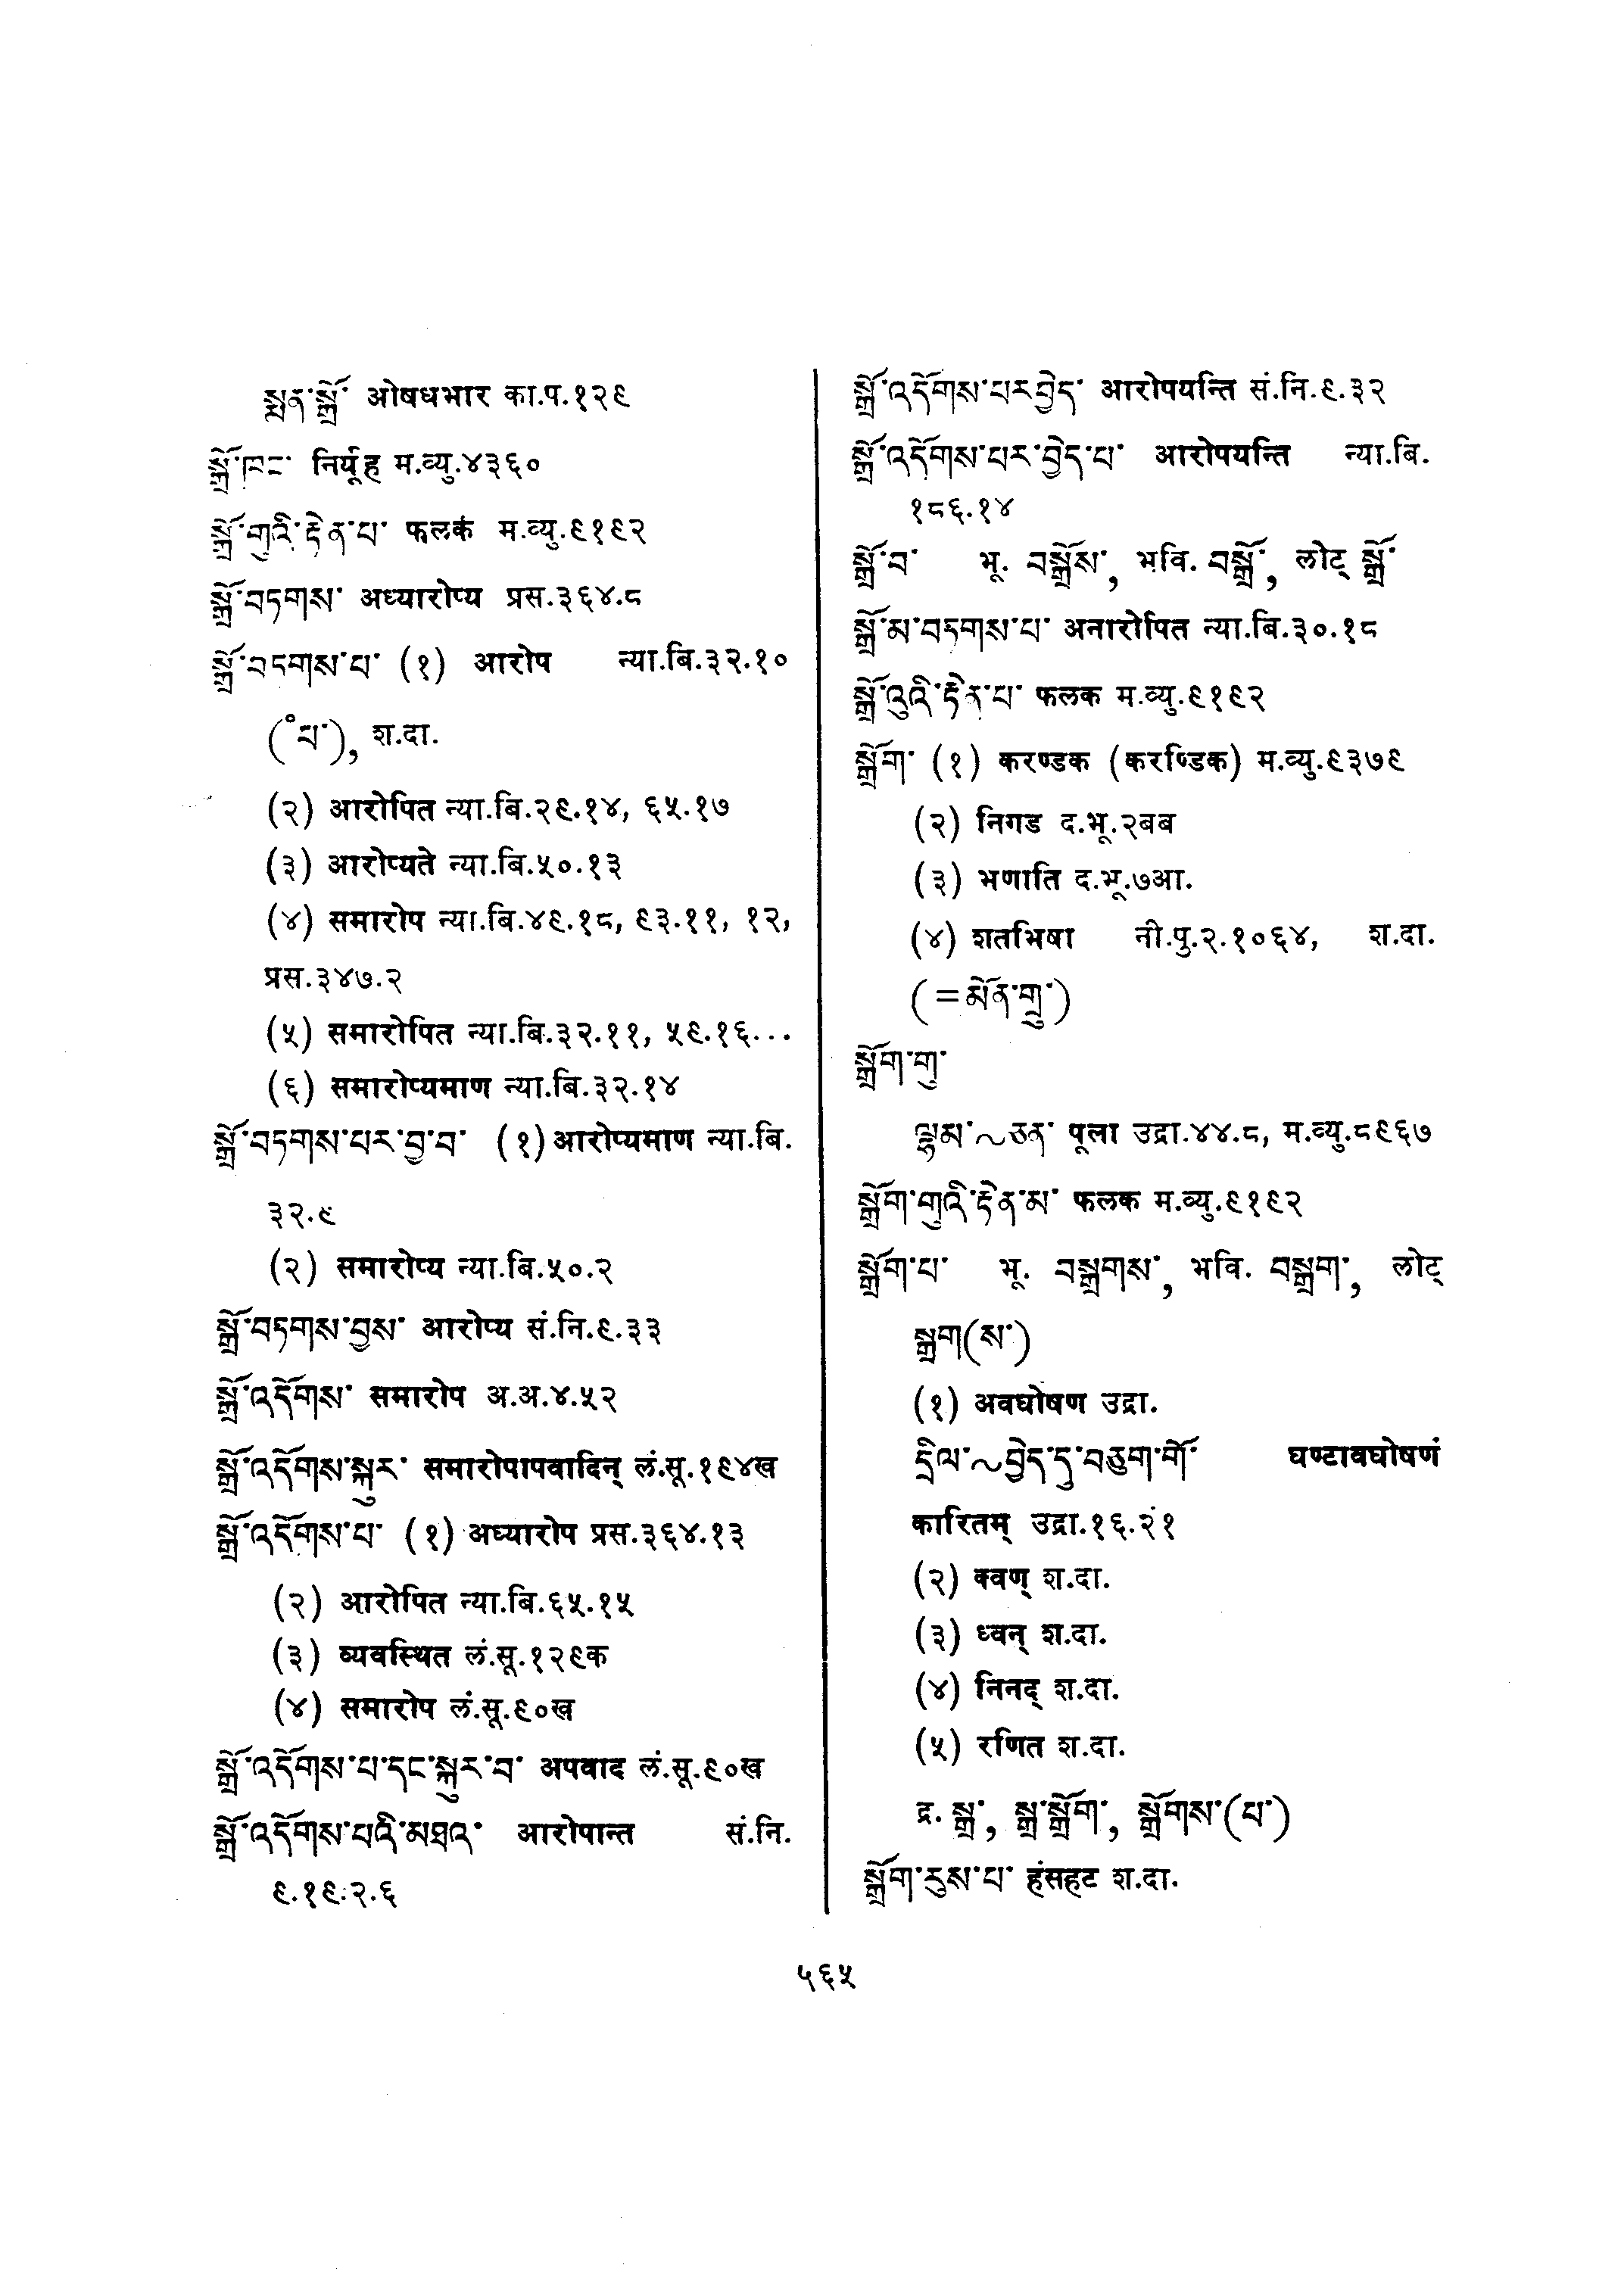 སྨན་སྒྲོ་ ओषधभार का.प.१२९
སྒྲོ་ཁང་ निर्यूह म.व्यु.४३६०
སྒྲོ་གུའི་རྟེན་པ་ फलकं म.व्यु.९१९२
སྒྲོ་བཏགས་ अध्यारोप्य प्रस.३६४.८
སྒྲོ་བཏགས་པ་ (१) आरोप न्या.बि.३२.१०
(°པ་), श.दा.
(२) आरोपित न्या.बि.२९.१४, ६५.१७
(३) आरोप्यते न्या.बि.५०.१३
(४) समारोप न्या.बि.४९.१८, ९३.११, १२,
प्रस.३४७.२
(५) समारोपित न्या.बि.३२.११, ५९.१६...
(६) समारोप्यमाण न्या.बि.३२.१४
སྒྲོ་བཏགས་པར་བྱ་བ་ (१) आरोप्यमाण न्या.बि.
३२.९
(२) समारोप्य न्या.बि.५०.२
སྒྲོ་བཏགས་བྱས་ आरोप्य सं.नि.९.३३
སྒྲོ་འདོགས་ समारोप अ.अ.४.५२
སྒྲོ་འདོགས་སྐུར་ समारोपापवादिन् लं.सू.१९४ख
སྒྲོ་འདོགས་པ་ (१) अध्यारोप प्रस.३६४.१३
(२) आरोपित न्या.बि.६५.१५
(३) व्यवस्थित लं.सू.१२९क
(४) समारोप लं.सू.९०ख
སྒྲོ་འདོགས་པ་དང་སྐུར་བ་ अपवाद लं.सू.९०ख
སྒྲོ་འདོགས་པའི་མཐའ་ आरोपान्त सं.नि.
९.१९.२.६
སྒྲོ་འདོགས་པར་བྱེད་ आरोपयन्ति सं.नि.९.३२
སྒྲོ་འདོགས་པར་བྱེད་པ་ आरोपयन्ति न्या.बि.
१८६.१४
སྒྲོ་བ་ भू. བསྒྲོས་, भवि. བསྒྲོ་, लोट् སྒྲོ་
སྒྲོ་མ་བཏགས་པ་ अनारोपित न्या.बि.३०.१८
སྒྲོ་འུའི་རྟེན་པ་ फलक म.व्यु.९१९२
སྒྲོག་ (१) करण्डक (करण्डिक) म.व्यु.९३७९
(२) निगड द.भू.२बब
(३) भणाति द.भू.७आ.
(४) शतभिषा नी.पु.२.१०६४, श.दा.
(=མོན་གྲུ་)
སྒྲོག་གུ་
ལྷམ་~ཅན་ पूला उद्रा.४४.८, म.व्यु.८९६७
སྒྲོག་གུའི་རྟེན་མ་ फलक म.व्यु.९१९२
སྒྲོག་པ་ भू. བསྒྲགས་, भवि. བསྒྲག་, लोट्
སྒྲག(ས་)
(१) अवघोषण उद्रा.
དྲིལ་~བྱེད་དུ་བཅུག་གོ་ घण्टावघोषणं
कारितम् उद्रा.१६.२१
(२) क्वण् श.दा.
(३) ध्वन् श.दा.
(४) निनद् श.दा.
(५) रणित श.दा.
द्र. སྒྲ་, སྒྲ་སྒྲོག་, སྒྲོགས་(པ་)
སྒྲོག་རུས་པ་ हंसहट श.दा.
५६५